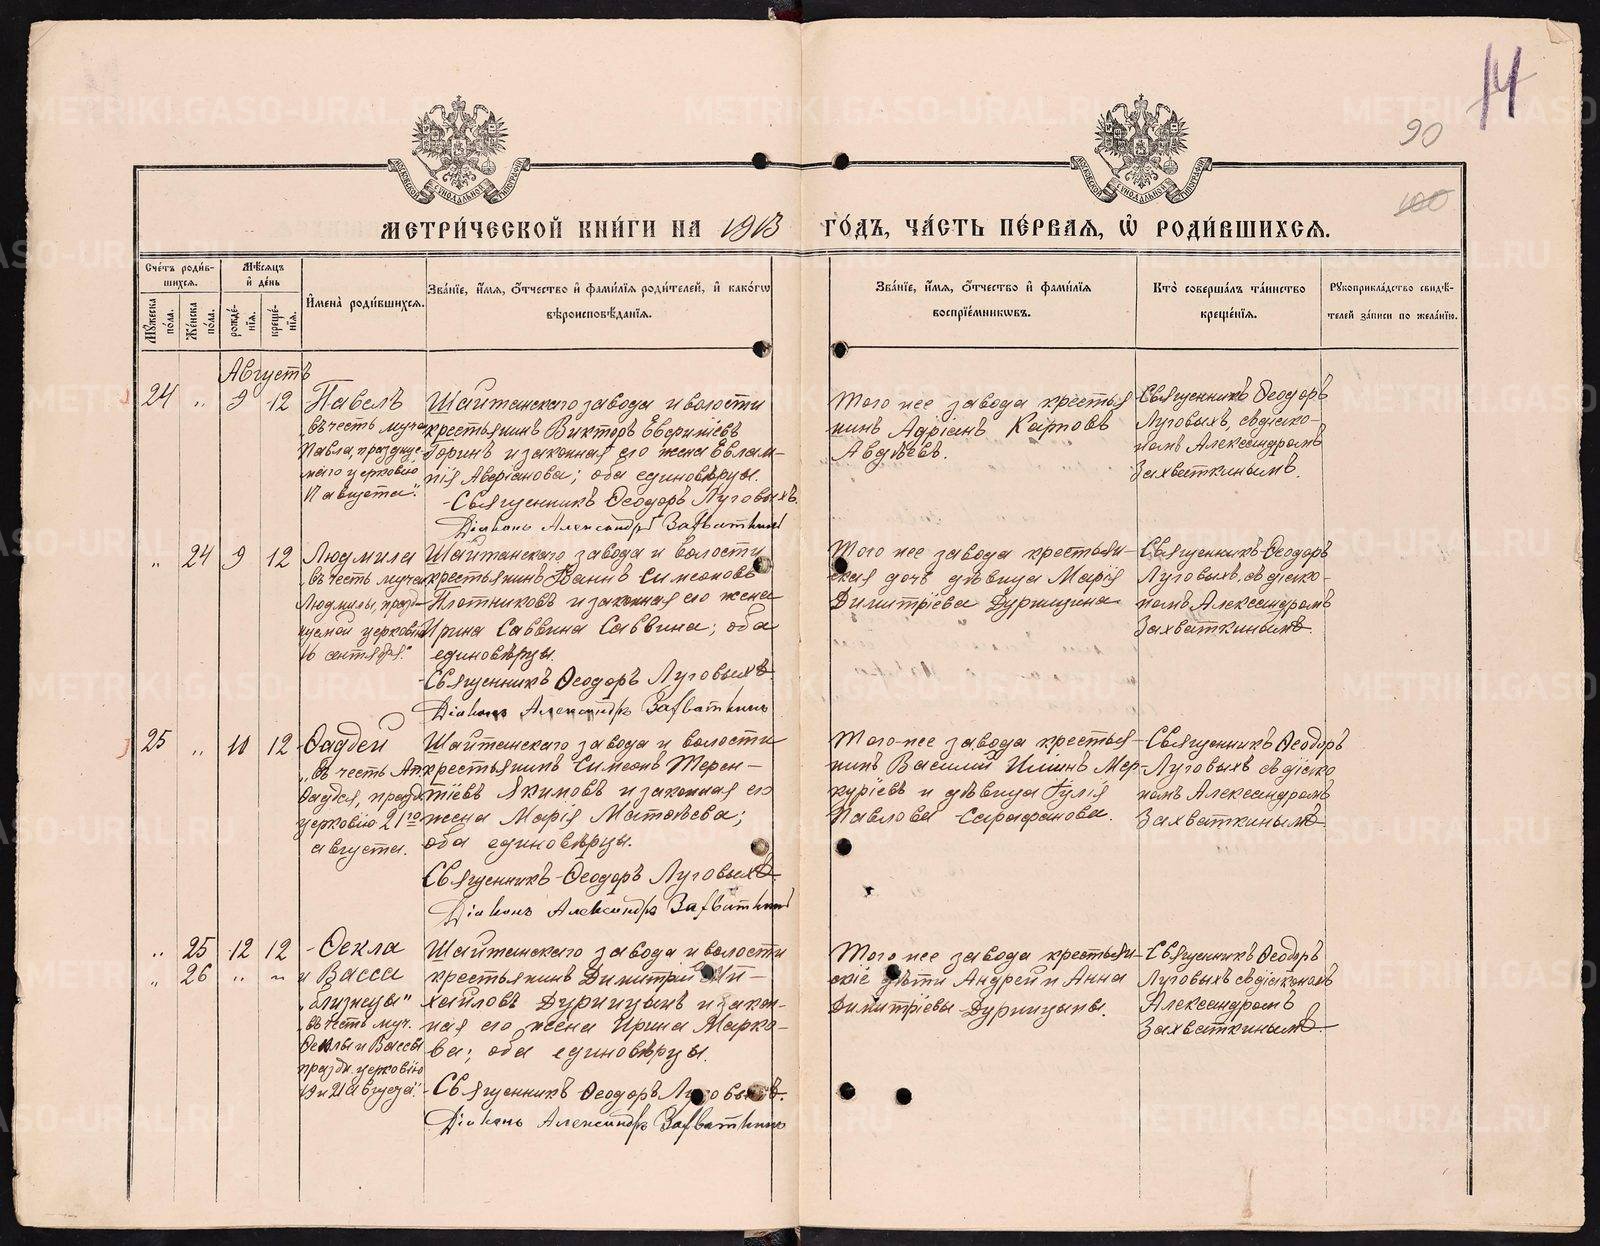 14
90
100
МЕТРИ́ЧЕСКОЙ КНИ́ГИ НА 1913 ГО́ДЪ, ЧА́СТЬ ПЕ́РВАЯ, Ѽ РОДИ́ВШИХСЯ.
Сче́тъ роди́в-
шихся.
Мѣ́сяцъ
и҆ де́нь
Мꙋ́жеска по́ла.
Же́нска по́ла.
рожде́-
нїѧ.
креще́-
нїѧ.
И҆мена̀ роди́вшихся.
Зва́нїе, и҆́мѧ, ѻ҆́тчество и҆ фами́лїѧ роди́телей, и҆ како́гѡ
вѣроисповѣ́данїѧ.
Зва́нїе, и҆́мѧ, ѻ҆́тчество и҆ фами́лїѧ
воспрїе́мникѡвъ.
Кто̀ соверша́лъ та́инство
креще́нїѧ.
Рꙋкоприкла́дство свидѣ́-
телей за́писи по жела́нїю.
Августъ
24 " 9 12 Павелъ
„въ честь муче
Павла, праздуе-
маго церковію
17 августа".
Шайтанскаго завода и волости
крестьянинъ Викторъ Евѳиміевъ
Горинъ и законная его жена Евлам-
пія Аверіанова; оба единовѣрцы.
Священникъ Ѳеодоръ Луговыхъ
Діаконъ Александръ Захваткинъ
Того же завода крестья
нинъ Адріанъ Карповъ
Авдѣевъ.
Священникъ Ѳеодоръ
Луговыхъ, съ діако-
номъ Александромъ
Захваткинымъ.
" 24 9 12 Людмила
„въ честь мучен
Людмилы, празд-
нуемой церковію
16 сентября."
Шайтанскаго завода и волости
крестьянинъ Іоаннъ Симеоновъ
Плотниковъ и законная его жена
Ирина Саввина Саввина; оба
единовѣрцы.
Священникъ Ѳеодоръ Луговыхъ
Діаконъ Александръ Захваткинъ
Того же завода крестьян-
ская дочь дѣвица Марія
Димитріева Дурницина
Священникъ Ѳеодоръ
Луговыхъ, съ діако-
номъ Александромъ
Захваткинымъ.
25 " 10 12 Ѳаддей
„въ честь Ап
Ѳаддея, праздн
церковію 21го
августа.
Шайтанскаго завода и волости
крестьянинъ Симеонъ Терен-
тіевъ Якимовъ и законная его
жена Марія Матѳѣева;
оба единовѣрцы.
Священникъ Ѳеодоръ Луговыхъ
Діаконъ Александръ Захваткинъ
Того же завода крестья-
нинъ Василій Илиинъ Мер-
куріевъ и дѣвица Іулія
Павлова Сарафанова.
Священникъ Ѳеодоръ
Луговыхъ съ діако
номъ Александромъ
Захваткинымъ
" 25 12 12 Ѳекла
" 26 " " и Васса
„близнецы"
„въ честь муч.
Ѳеклы и Вассы
праздн. церковію
19 и 21 августа".
Шайтанскаго завода и волости
крестьянинъ Димитрій Ми-
хайловъ Дурницынъ и закон-
ная его жена Ирина Марко-
ва; оба единовѣрцы.
Священникъ Ѳеодоръ Луговыхъ.
Діаконъ Александръ Захваткинъ
Того же завода крестьян-
скіе дѣти Андрей и Анна
Димитріевы Дурницыны.
Священникъ Ѳеодоръ
Луговыхъ съ діакономъ
Александромъ
Захваткинымъ
METRIKI.GASO-URAL.RU